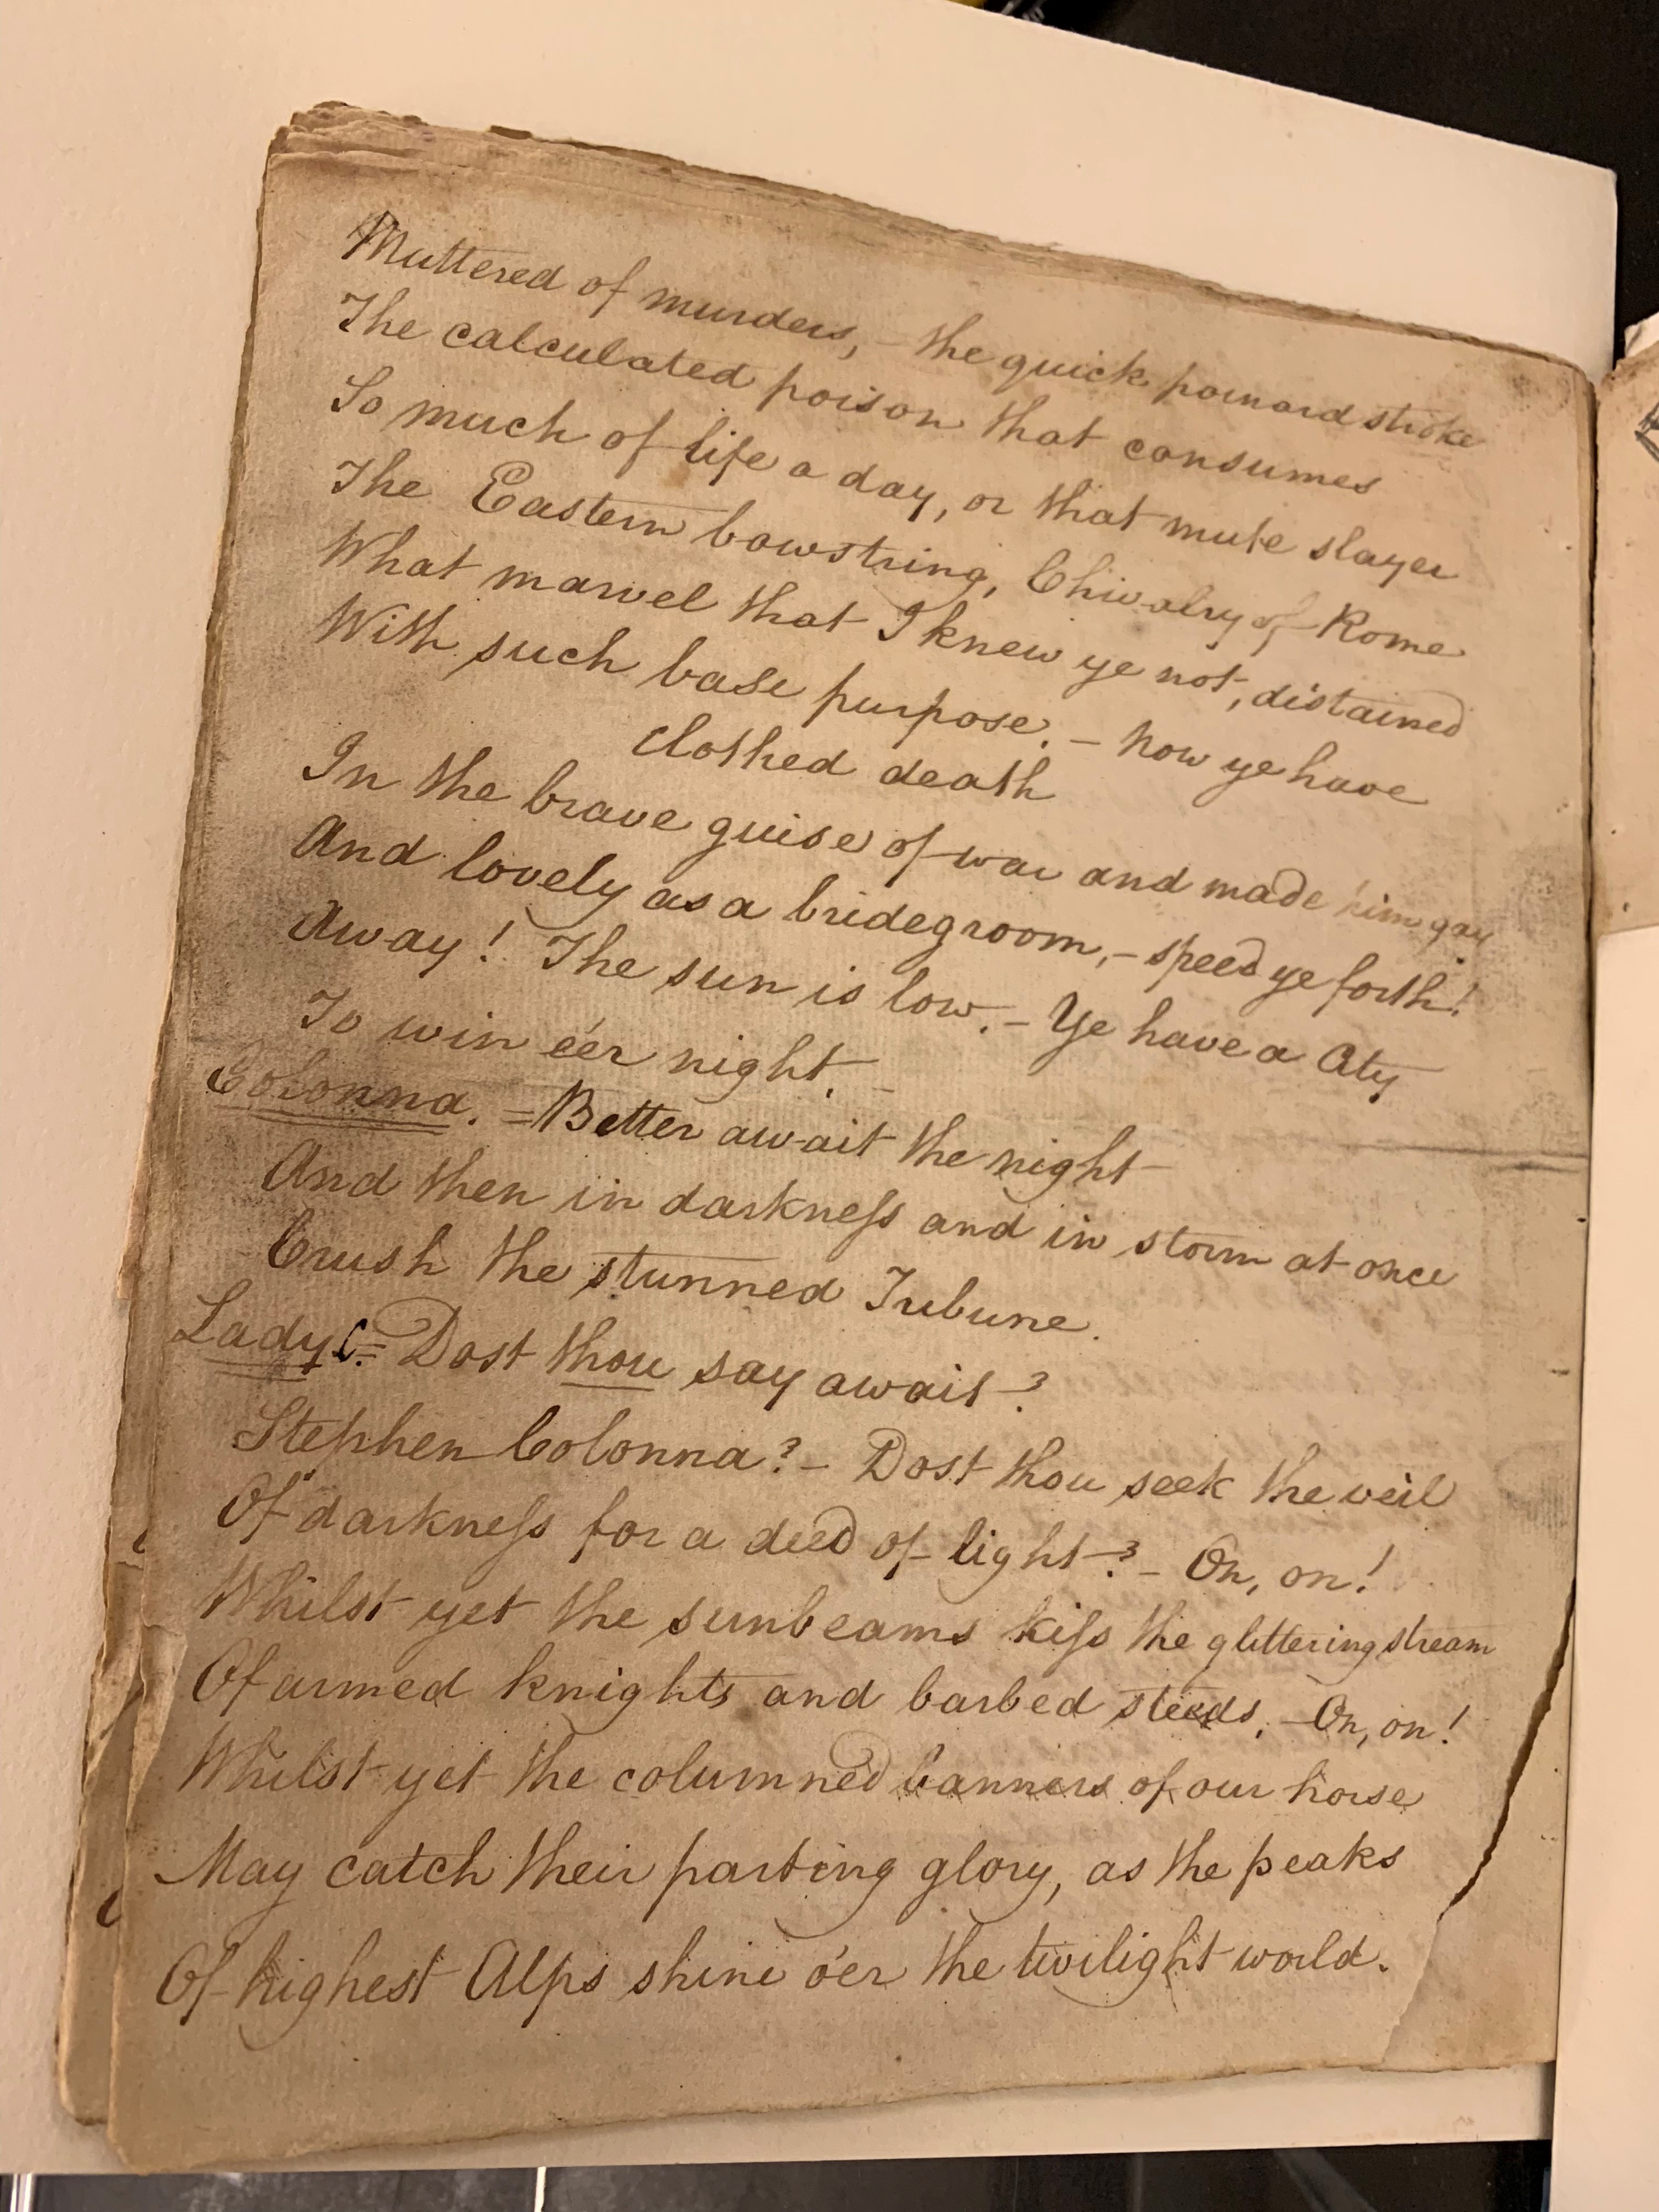 Muttered of murders, – the quick poinard stroke
The calculated poison that consumes
So much of life a day, or that mute slayer
The Eastern bowstring, Chivalry of Rome
What marvel that I knew ye not, distained
With such base purpose. – Now ye have
clothed death
In the brave guise of war and made him gay
And lovely as a bridegroom, – speed ye forth!
Away! The sun is low. – Ye have a City
To win e'er night. –
Colonna. = Better await the night
And then in darkness and in storm at once
Crush the stunned Tribune.
Lady C. = Dost thou say await?
Stephen Colonna? – Dost thou seek the veil
Of darkness for a deed of light? – On, on!
Whilst yet the sunbeams kiss the glittering stream
Of armed knights and barbed steeds, – On, on!
Whilst yet the columned banners of our horse
May catch their parting glory, as the peaks
Of highest Alps shine o'er the twilight world.